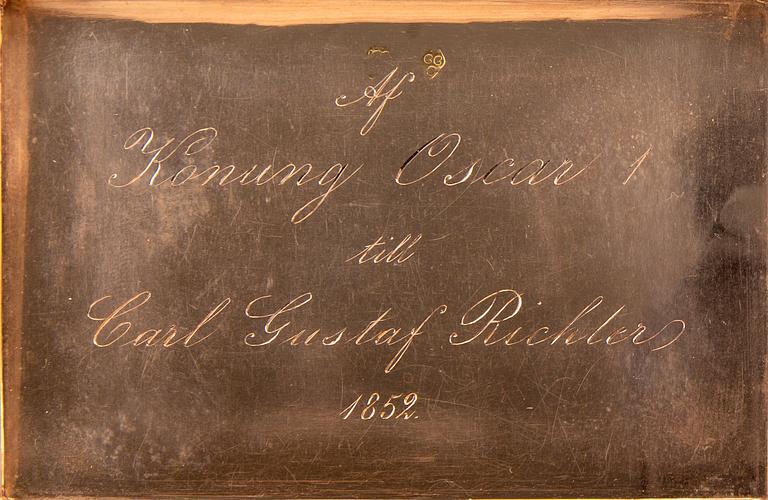 GG
Af
Konung Oscar 1
till
Carl Gustaf Richter
1852.